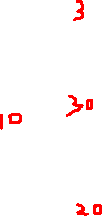 3
30
10
20